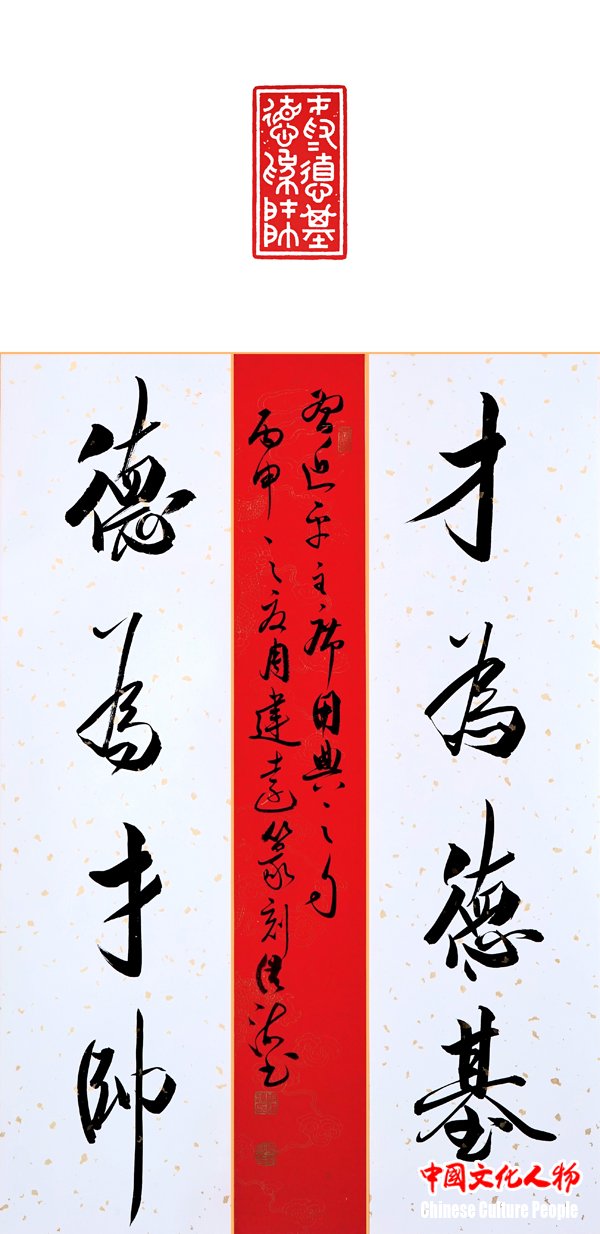 才為德基
德為才帥
才為德基
習近平主席用典之句
丙申之夏周建遠篆刻
德為才帥
中國文化人物
Chinese Culture People